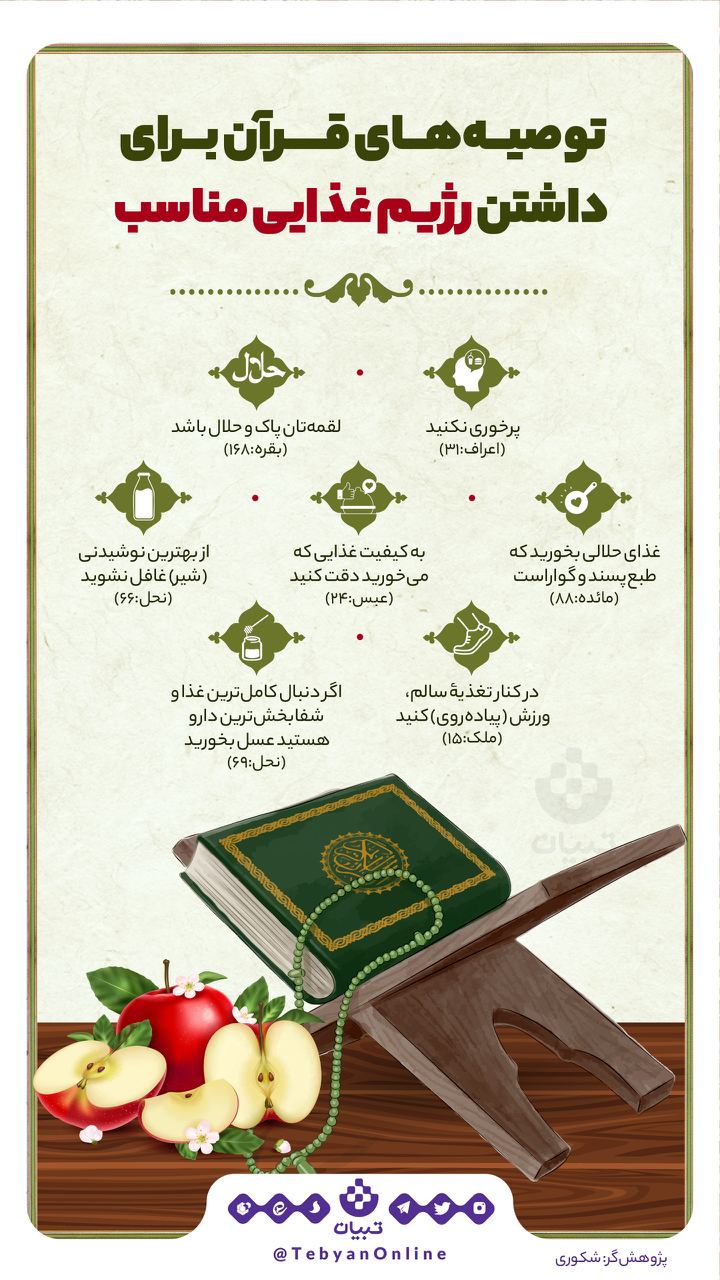 توصیه‌های قرآن برای
داشتن رژیم غذایی مناسب
پرخوری نکنید
(اعراف:۳۱)
حلال
لقمه‌تان پاک و حلال باشد
(بقره:۱۶۸)
غذای حلالی بخورید که
طبع‌پسند و گواراست
(مائده:۸۸)
به کیفیت غذایی که
می‌خورید دقت کنید
(عبس:۲۴)
از بهترین نوشیدنی
(شیر) غافل نشوید
(نحل:۶۶)
در کنار تغذیهٔ سالم،
ورزش (پیاده‌روی) کنید
(ملک:۱۵)
اگر دنبال کامل‌ترین غذا و
شفابخش‌ترین دارو
هستید عسل بخورید
(نحل:۶۹)
تبیان
تبیان
@TebyanOnline
پژوهش‌گر: شکوری